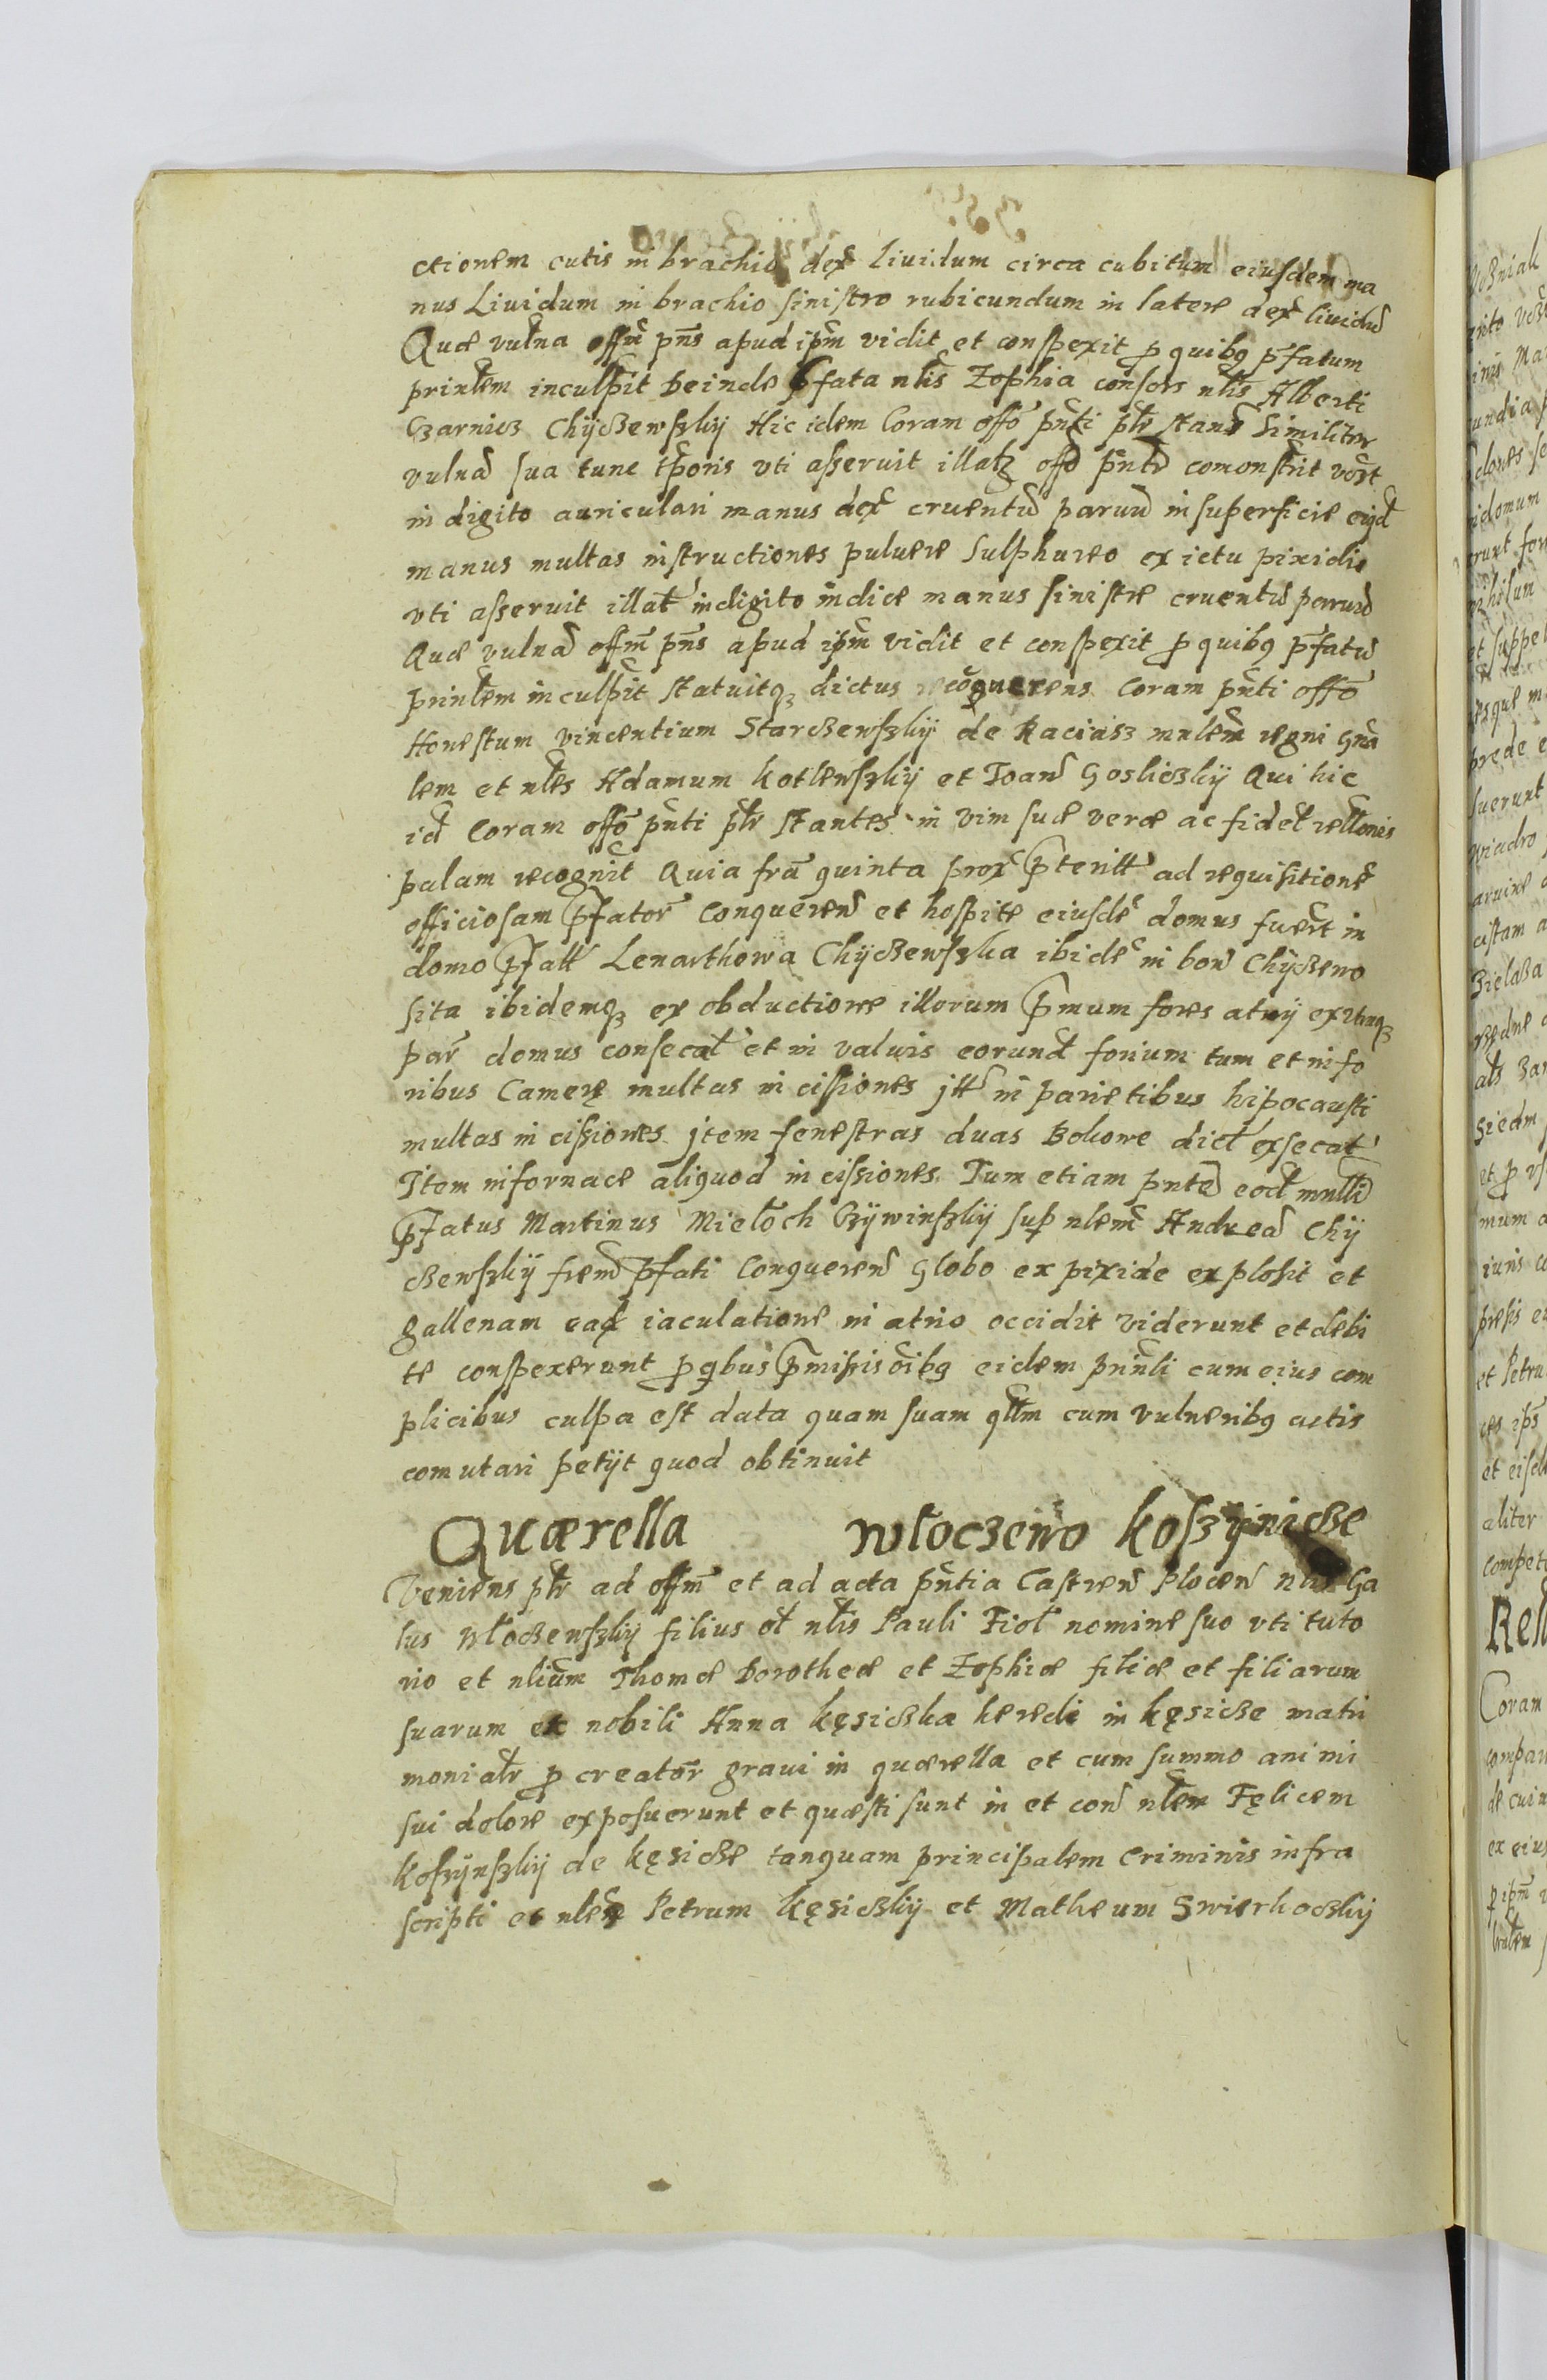 ctionem cutis in brachio dex lividum circa cubitum eiusdem ma
nus Lividum in brachio sinistro rubicundum in latere dex lividũ
Quæ vulna offm pñs apud ipm vidit et conspexit p quibg pfatum
prinlem inculpit Deinde pfata nlis Zophia consors nlis Alberti
Czarnicz Chÿczewskÿ Hic idem Coram offo pñti plr stans Similiter
vulna sua tunc tporis vti asseruit illatz offo pnti comonstrit vört
in digito auriculari manus dex cruentũ parvũ in superficie eijd
manus multas instructiones pulvere Sulphureo ex ictu pixidis
vti asseruit illat in digito indice manus sinistræ cruentũ parvũ
Quæ vulna offm pñs apud ipm vidit et conspexit p quibg pfatũ
prinlem inculpit statuitqz dictus conquerens Coram pñti offo
Honestum vincentium Starczewskÿ de Raciasz mnlem regni gna
lem et nles Adamum kotlewskÿ et Joan Gosliczkÿ Qui hic
id Coram offo pñti plr stantes in vim suæ veræ ac fidel rellonis
palam recognit Quia fra quinta prox pteritt ad requisitionẽ
officiosam pfator Conqueren et hospite eiusde domus fuert in
domo pfatt Lenarthowa Chÿczewska ibide in bon Chÿczeno
sita ibidemqz ex obductione illorum pmum fores atrij exitumqz
par domus consecat et in valuis eorund forium tum et in fo
ribus Camerę multas incissiones jtt in parietibus hipocausti
multas incisiones jtem fenestras duas Bokowe dict exsecat
Item in fornace aliquod incissiones Tum etiam pnte eod mnlli
pfatus Martinus Mieloch Czÿwinskÿ sup nlem Andrea Chÿ
czewskÿ frem pfati Conqueren Globo ex pixide explosit et
gallenam ead iaculatione in atrio occidit viderunt et debi
te conspexerunt p qbus pmissis oibg eidem prinli cum eius com
plicibus culpa est data quam suam qllm cum vulneribg actis
comutari petijt quod obtinuit
Quærella Wloczewo koszÿnicze
Veniens plr ad offm et ad acta pñtia Castren Plocen nlis Ga
lus Wloczewskÿ filius ol nlis Pauli Fiol nomine suo vti tuto
rio et nlium Thomæ Dorotheæ et Zophiæ filiæ et filiarum
suarum ex nobili Anna kęsiczka heredi in kęsicze matri
monialr p creator gravi in quærella et cum summo animi
sui dolore exposuerunt et quæsti sunt in et con nlem Fęlicem
kossÿnskÿ de kęsicze tanquam principalem Criminis infra
scripti et nlem Petrum kęsiczkÿ et Matheum Swierkoczkÿ